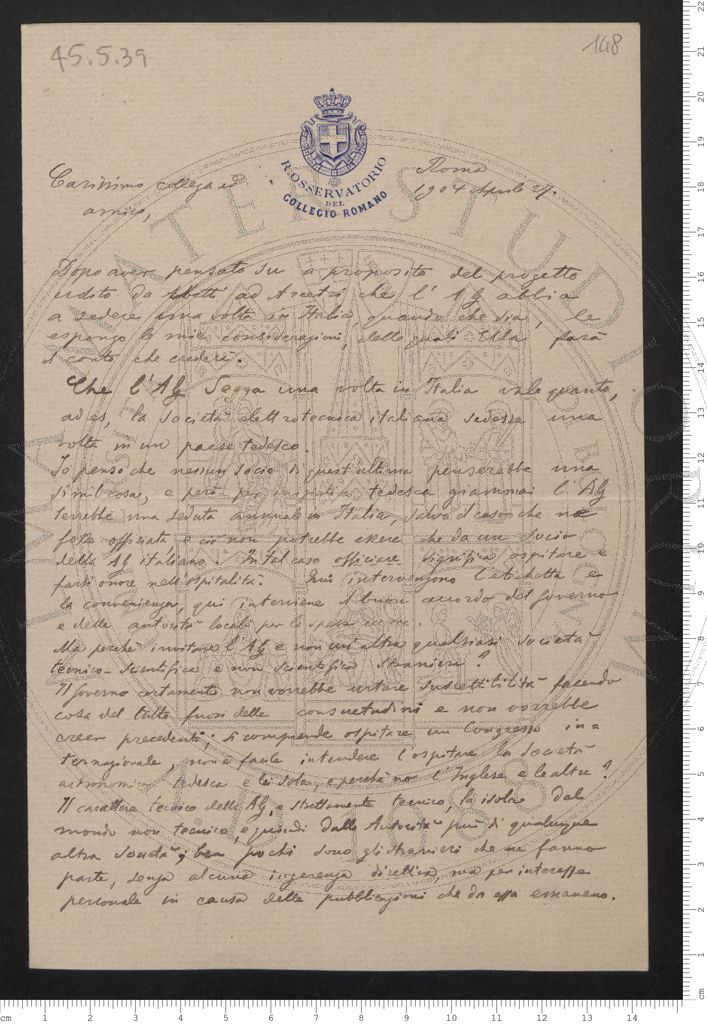 45.5.39
148
R. OSSERVATORIO
DEL
COLLEGIO ROMANO
Roma
1904 Aprile 27.
Carissimo collega ed
amico,
Dopo aver pensato su a proposito del progetto
udito da Abetti ad Arcetri che l'AG abbia
a sedere una volta in Italia, quando che sia, le
espongo le mie considerazioni, delle quali Ella farà
il conto che crederà.
Che l'AG segga una volta in Italia vale quanto,
ad es, la Società elettrotecnica italiana sedesse una
volta in un paese tedesco.
Io penso che nessun socio di quest'ultima penserebbe una
simil cosa, e però per iniziativa tedesca giammai l'AG
terrebbe una seduta annuale in Italia, salvo il caso che ne
fosse officiata e ciò non potrebbe essere che da un socio
della AG italiano. In tal caso officiare significa ospitare e
farsi onore nell'ospitalità. Qui intervengono l'etichetta e
la convenienza, qui interviene il buon accordo del Governo
e delle autorità locali per le spese
Ma perchè invitare l'AG e non un'altra qualsiasi società
tecnico-scientifica e non scientifica straniera?
Il Governo certamente non vorrebbe urtare suscettibilità facendo
cosa del tutto fuori delle consuetudini e non vorrebbe
creare precedenti; si comprende ospitare un Congresso in=
ternazionale, non è facile intendere l'ospitare la Società
astronomica tedesca e lei sola, e perchè no l'Inglese e le altre?
Il carattere tecnico della AG, e strettamente tecnico, la isola dal
mondo non tecnico, e quindi dalle Autorità più di qualunque
altra società; ben pochi sono gli stranieri che ne fanno
parte, senza alcuna ingerenza direttiva, ma per interesse
personale in causa delle pubblicazioni che da essa emanano.